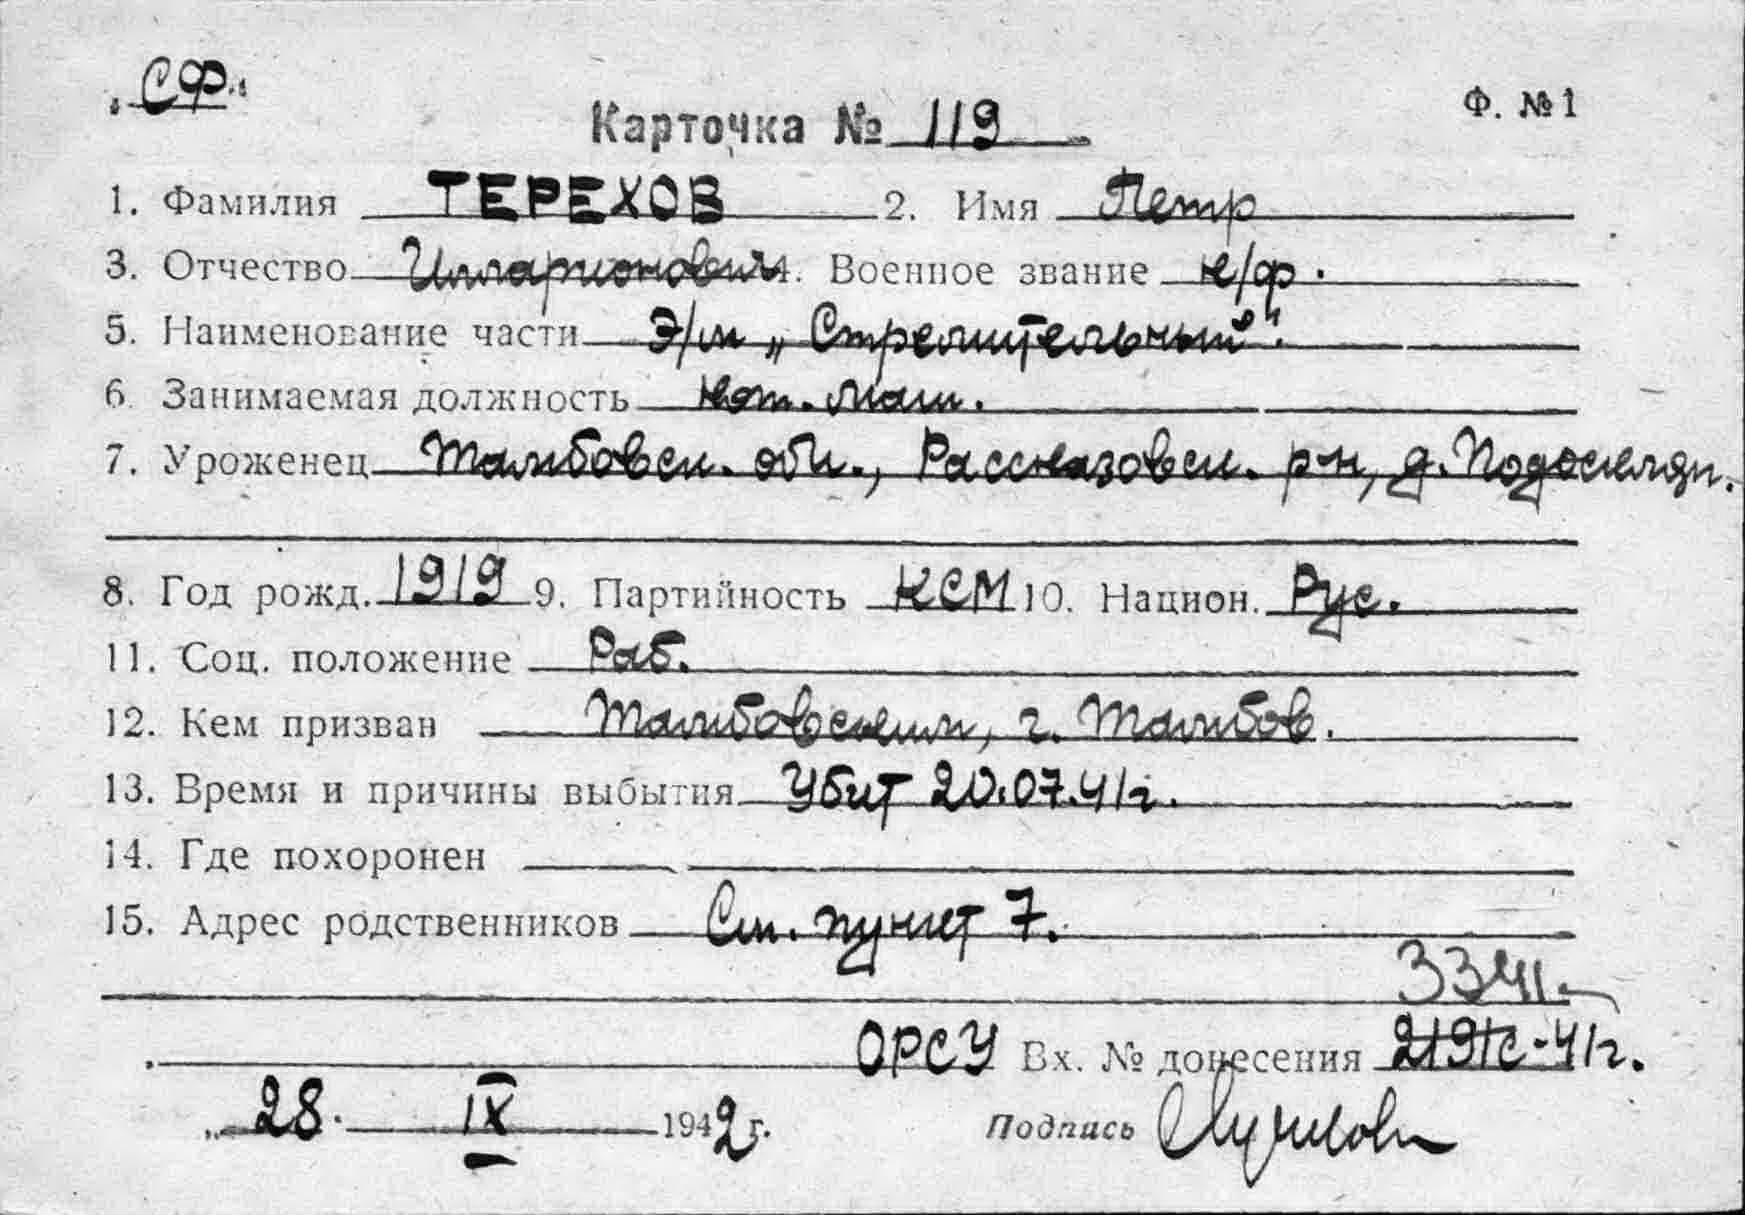 „СФ"
Ф. №1
Карточка № 119
1. Фамилия ТЕРЕХОВ 2. Имя Петр
3. Отчество Илларионович 4. Военное звание к/ф.
5. Наименование части Э/м „Стремительный".
6. Занимаемая должность кот. маш.
7. Уроженец Тамбовск. обл., Рассказовск. р-н, д. Подоскляи.
8. Год рожд. 1919 9. Партийность КСМ 10. Национ. Рус.
11. Соц. положение Раб.
12. Кем призван Тамбовским, г. Тамбов.
13. Время и причины выбытия Убит 20.07.41г.
14. Где похоронен
15. Адрес родственников См. пункт 7.
ОРСУ Вх. № донесения 2191с-41г.
„28. IX 1942 г. Подпись